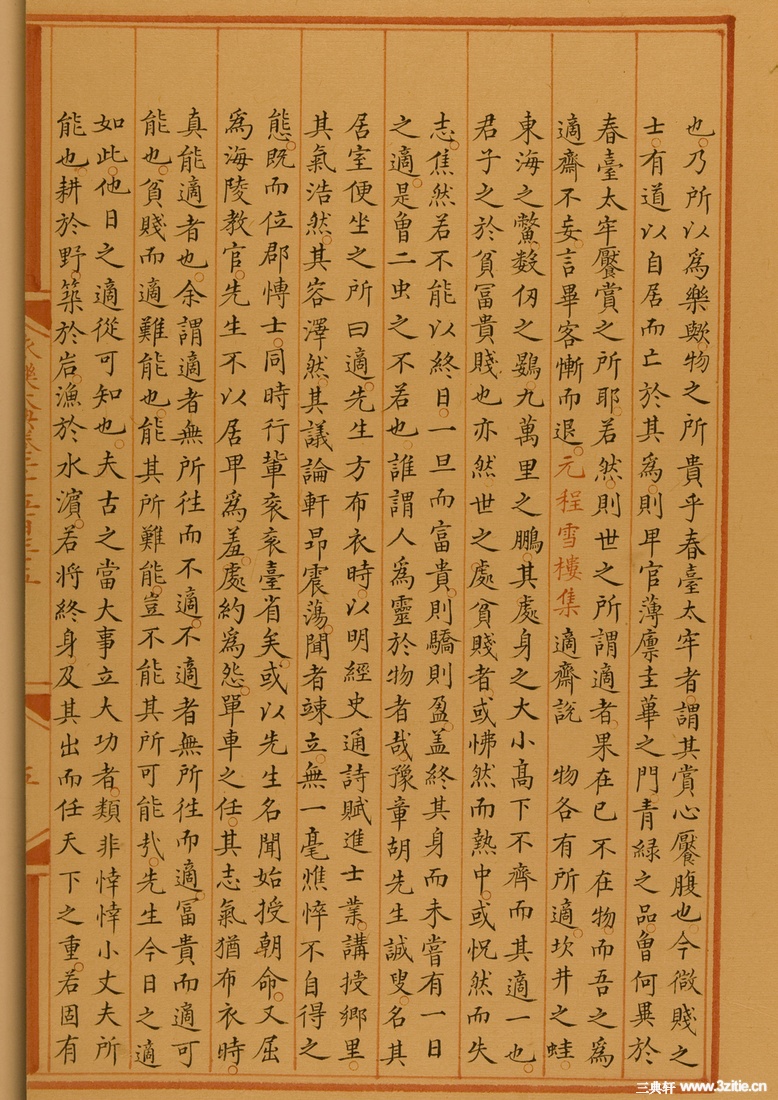 也乃所以為樂歟物之所貴乎春臺太牢者謂其賞心饜腹也今微賤之
士有道以自居而亡於其為則卑官薄廩圭蓽之門青綠之品曾何異於
春臺太牢饜賞之所耶若然則世之所謂適者果在已不在物而吾之為
適齋不妄言畢客慚而退元程雪樓集適齋說 物各有所適坎井之蛙
東海之鱉數仞之鷃九萬里之鵬其處身之大小高下不齊而其適一也
君子之於貧冨貴賤也亦然世之處貧賤者或怫然而熱中或怳然而失
志焦然若不能以終日一旦而富貴則驕則盈盖終其身而未嘗有一日
之適是曾二虫之不若也誰謂人為靈於物者哉豫章胡先生誠叟名其
居室便坐之所曰適先生方布衣時以明經史通詩賦進士業講授郷里
其氣浩然其容澤然其議論軒昂震蕩聞者竦立無一毫憔悴不自得之
態既而位郡愽士同時行輩衮衮臺省矣或以先生名聞始授朝命又屈
為海陵教官先生不以居卑為羞處約為怨單車之任其志氣猶布衣時
真能適者也余謂適者無所往而不適不適者無所往而適冨貴而適可
能也貧賤而適難能也能其所難能豈不能其所可能㢤先生今日之適
如此他日之適從可知也夫古之當大事立大功者類非悻悻小丈夫所
能也耕於野築於岩漁於水濵若將終身及其出而任天下之重若固有
五
三典轩 www.3zitie.cn